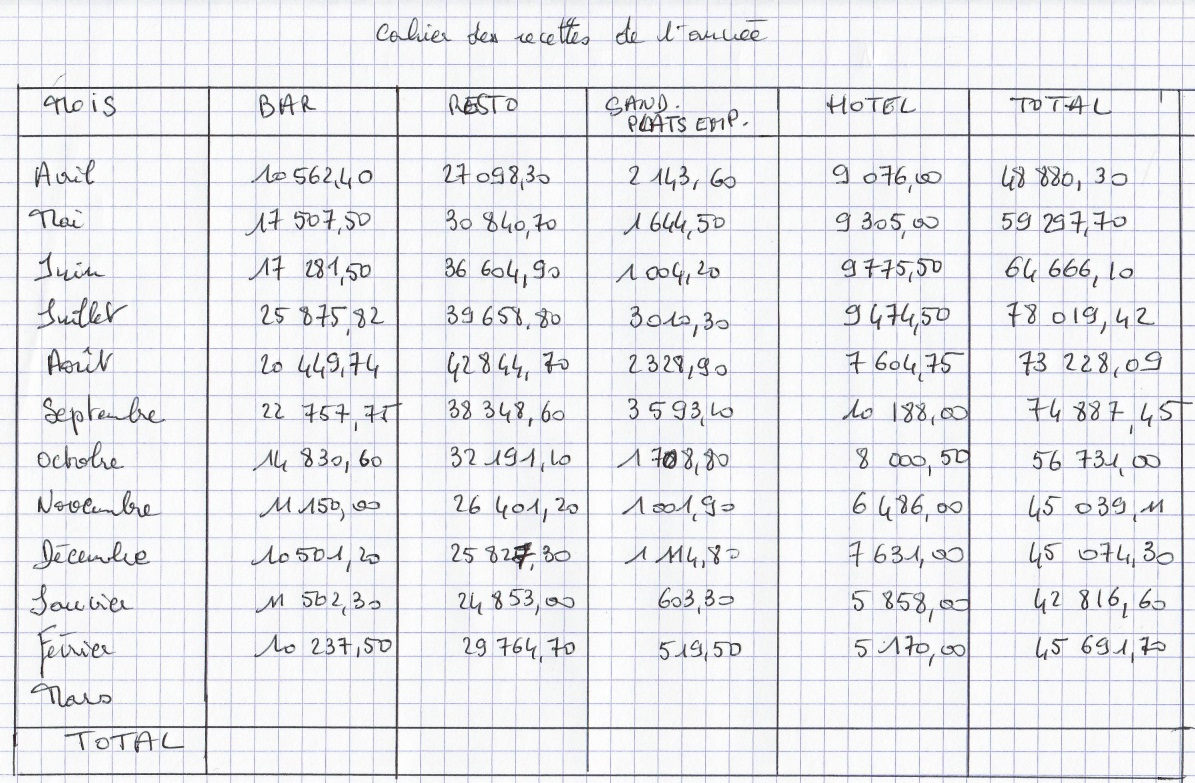 Cahier des recettes de l'année
Mois BAR RESTO SAND. PLATS EMP. HOTEL TOTAL
Avril 10 562,40 27 098,30 2 143,60 9 076,00 48 880,30
Mai 17 507,50 30 840,70 1 644,50 9 305,00 59 297,70
Juin 17 281,50 36 604,90 1 004,20 9 775,50 64 666,10
Juillet 25 875,82 39 658,80 3 010,30 9 474,50 78 019,42
Août 20 449,74 42 844,70 2 328,90 7 604,75 73 228,09
Septembre 22 757,75 38 348,60 3 593,10 10 188,00 74 887,45
Octobre 14 830,60 32 191,10 1 708,80 8 000,50 56 731,00
Novembre 11 150,00 26 401,20 1 001,90 6 486,00 45 039,11
Décembre 10 501,20 25 827,30 1 114,80 7 631,00 45 074,30
Janvier 11 502,30 24 853,00 603,30 5 858,00 42 816,60
Février 10 237,50 29 764,70 519,50 5 170,00 45 691,70
Mars
TOTAL